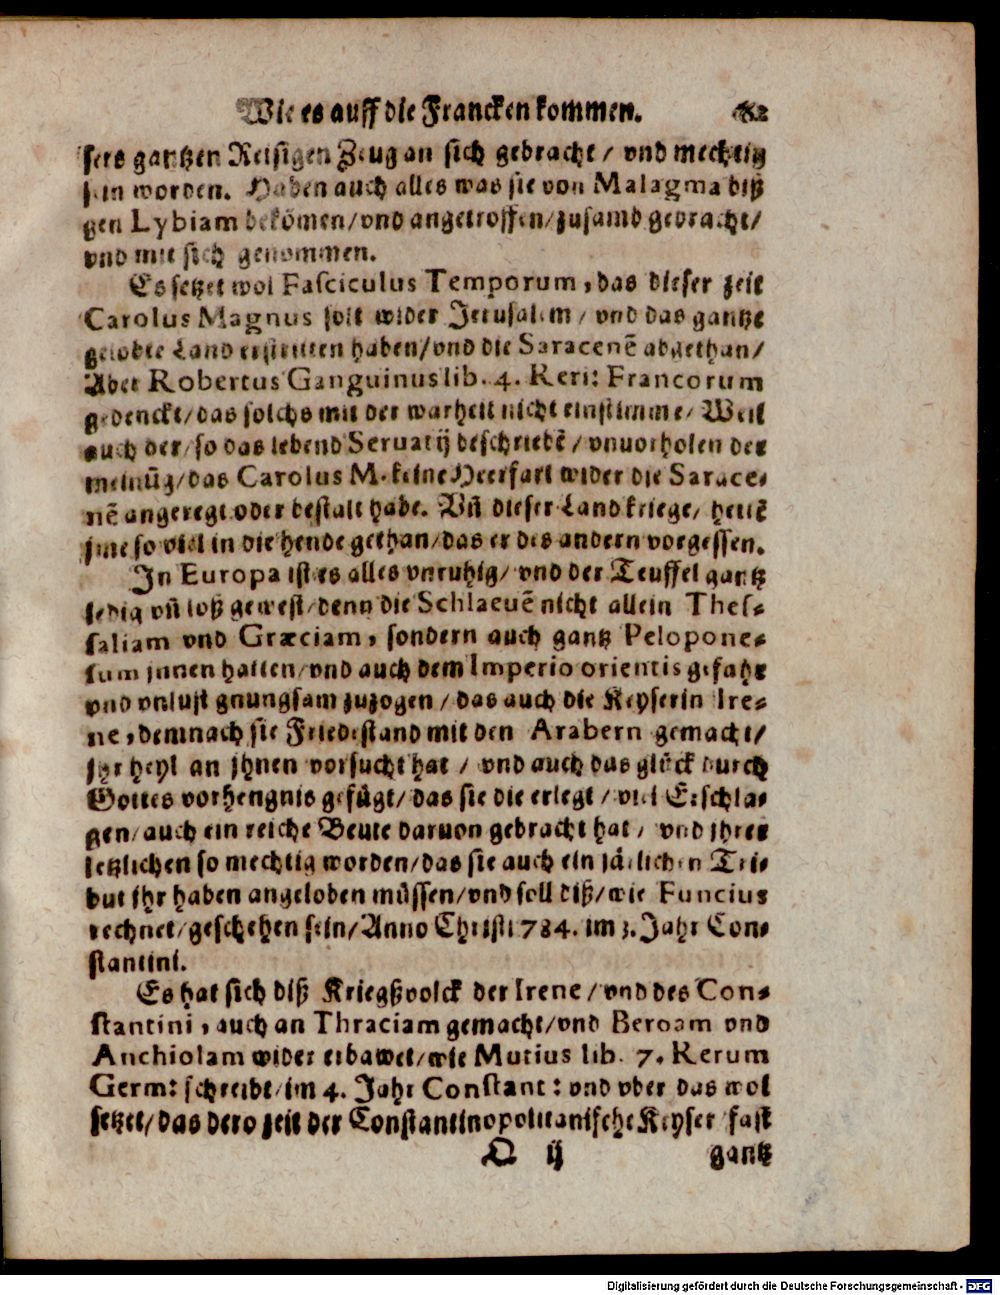 Wie es auff die Francken kommen. 62
sers gantzen Reisigen Zeug an sich gebracht / vnd mechtig
sein worden. Haben auch alles was sie von Malagma biß
gen Lybiam bekõmen/vnd angetroffen/zusamb gebracht/
vnd mit sich genommen.
Es setzet wol Fasciculus Temporum, das dieser zeit
Carolus Magnus solt wider Jerusalem / vnd das gantze
gelobte Land erstritten haben/vnd die Saracenẽ abgethan/
Aber Robertus Ganguinus lib. 4. Reru: Francorum
gedenckt/das solchs mit der warheit nicht einstimme/ Weil
auch der/so das lebend Seruatij beschriebẽ / vnuorholen der
meinũg/das Carolus M. keine Heerfart wider die Sarace-
nẽ angeregt oder bestalt habe. Vñ dieser Land kriege/ hettẽ
jme so viel in die hende gethan/das er des andern vorgessen.
In Europa ist es alles vnruhig/ vnd der Teuffel gantz
ledig vñ loß gewest/denn die Schlaeuẽ nicht allein Thes-
saliam vnd Græciam, sondern auch gantz Pelopone-
sum jnnen hatten/vnd auch dem Imperio orientis gefahr
vnd vnlust gnungsam zuzogen / das auch die Keyserin Ire-
ne, demnach sie Friedestand mit den Arabern gemacht/
jhr heyl an jhnen vorsucht hat / vnd auch das glück durch
Gottes vorhengnis gefügt/das sie die erlegt / viel Erschla-
gen/auch ein reiche Beute daruon gebracht hat / vnd jhrer
letzlichen so mechtig worden/das sie auch ein järlichen Tri-
but jhr haben angeloben müssen/vnd soll diß/wie Funcius
rechnet/geschehen sein/Anno Christi 784. im 3. Jahr Con-
stantini.
Es hat sich diß Kriegßvolck der Irene / vnd des Con-
stantini, auch an Thraciam gemacht/vnd Beroam vnd
Anchiolam wider erbawet/wie Mutius lib. 7. Rerum
Germ: schreibt/im 4. Jahr Constant: vnd vber das wol
setzet/das dero zeit der Constantinopolitanische Keyser fast
Q ij gantz
Digitalisierung gefördert durch die Deutsche Forschungsgemeinschaft - DFG